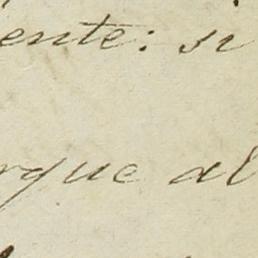 ente: si
rque al